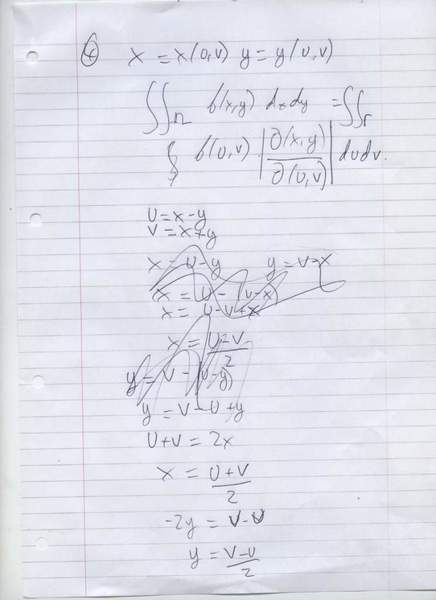 ④ x = x(u,v) y = y(u,v)
∬_R f(x,y) dxdy = ∬_Γ
f(u,v) |∂(x,y)/∂(u,v)| dudv.
U = x-y
V = x+y
x = u-y y = v-x
x = u-(v-x)
x = u-v+x
x = u-v/2
y = v-(u-y)
y = v-u+y
u+v = 2x
x = u+v/2
-2y = v-u
y = v-u/2